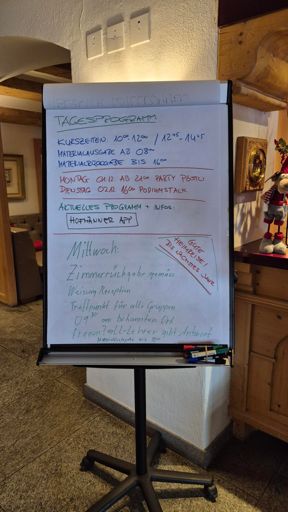 TAGESPROGRAMM
KURSZEITEN 10⁰⁰-12⁰⁰ / 12⁴⁵-14⁴⁵
MATERIALAUSGABE AB 08⁰⁰
BIS 16⁰⁰
MONTAG 01.12 AB 21⁰⁰ PARTY
DIENSTAG 02.12 16⁰⁰ PODIUMSTALK
AKTUELLES PROGRAMM + INFOS:
HOFMÄNNER APP
GUTE
HEIMREISE!
BIS NÄCHSTES JAHR
Mittwoch
Zimmerrückgabe gemäss
Weisung Reception
Treffpunkt für alle Gruppen
09³⁰ am bekannten Ort
Lehrer gibt Antwort